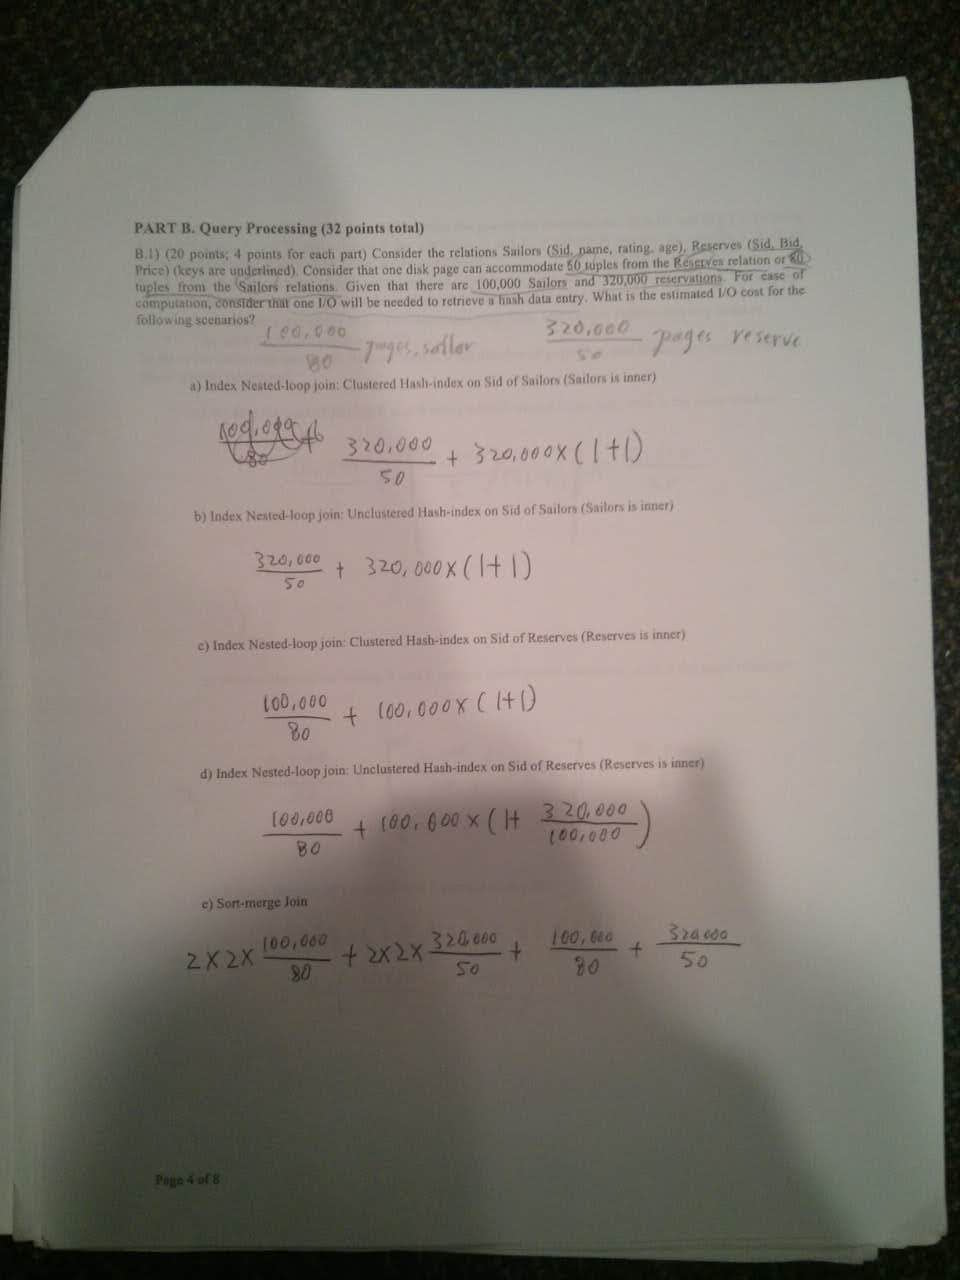 PART B. Query Processing (32 points total)
B.1) (20 points; 4 points for each part) Consider the relations Sailors (Sid, name, rating, age), Reserves (Sid, Bid,
Price) (keys are underlined). Consider that one disk page can accommodate 50 tuples from the Reserves relation or 80
tuples from the Sailors relations. Given that there are 100,000 Sailors and 320,000 reservations. For ease of
computation, consider that one I/O will be needed to retrieve a hash data entry. What is the estimated I/O cost for the
following scenarios?
100,000/80 pages, sailor 320,000/50 pages reserve
a) Index Nested-loop join: Clustered Hash-index on Sid of Sailors (Sailors is inner)
320,000/50 + 320,000 x (1+1)
b) Index Nested-loop join: Unclustered Hash-index on Sid of Sailors (Sailors is inner)
320,000/50 + 320,000 x (1+1)
c) Index Nested-loop join: Clustered Hash-index on Sid of Reserves (Reserves is inner)
100,000/80 + 100,000 x (1+1)
d) Index Nested-loop join: Unclustered Hash-index on Sid of Reserves (Reserves is inner)
100,000/80 + 100,000 x (1+ 320,000/100,000)
e) Sort-merge Join
2x2x 100,000/80 + 2x2x 320,000/50 + 100,000/80 + 320000/50
Page 4 of 8